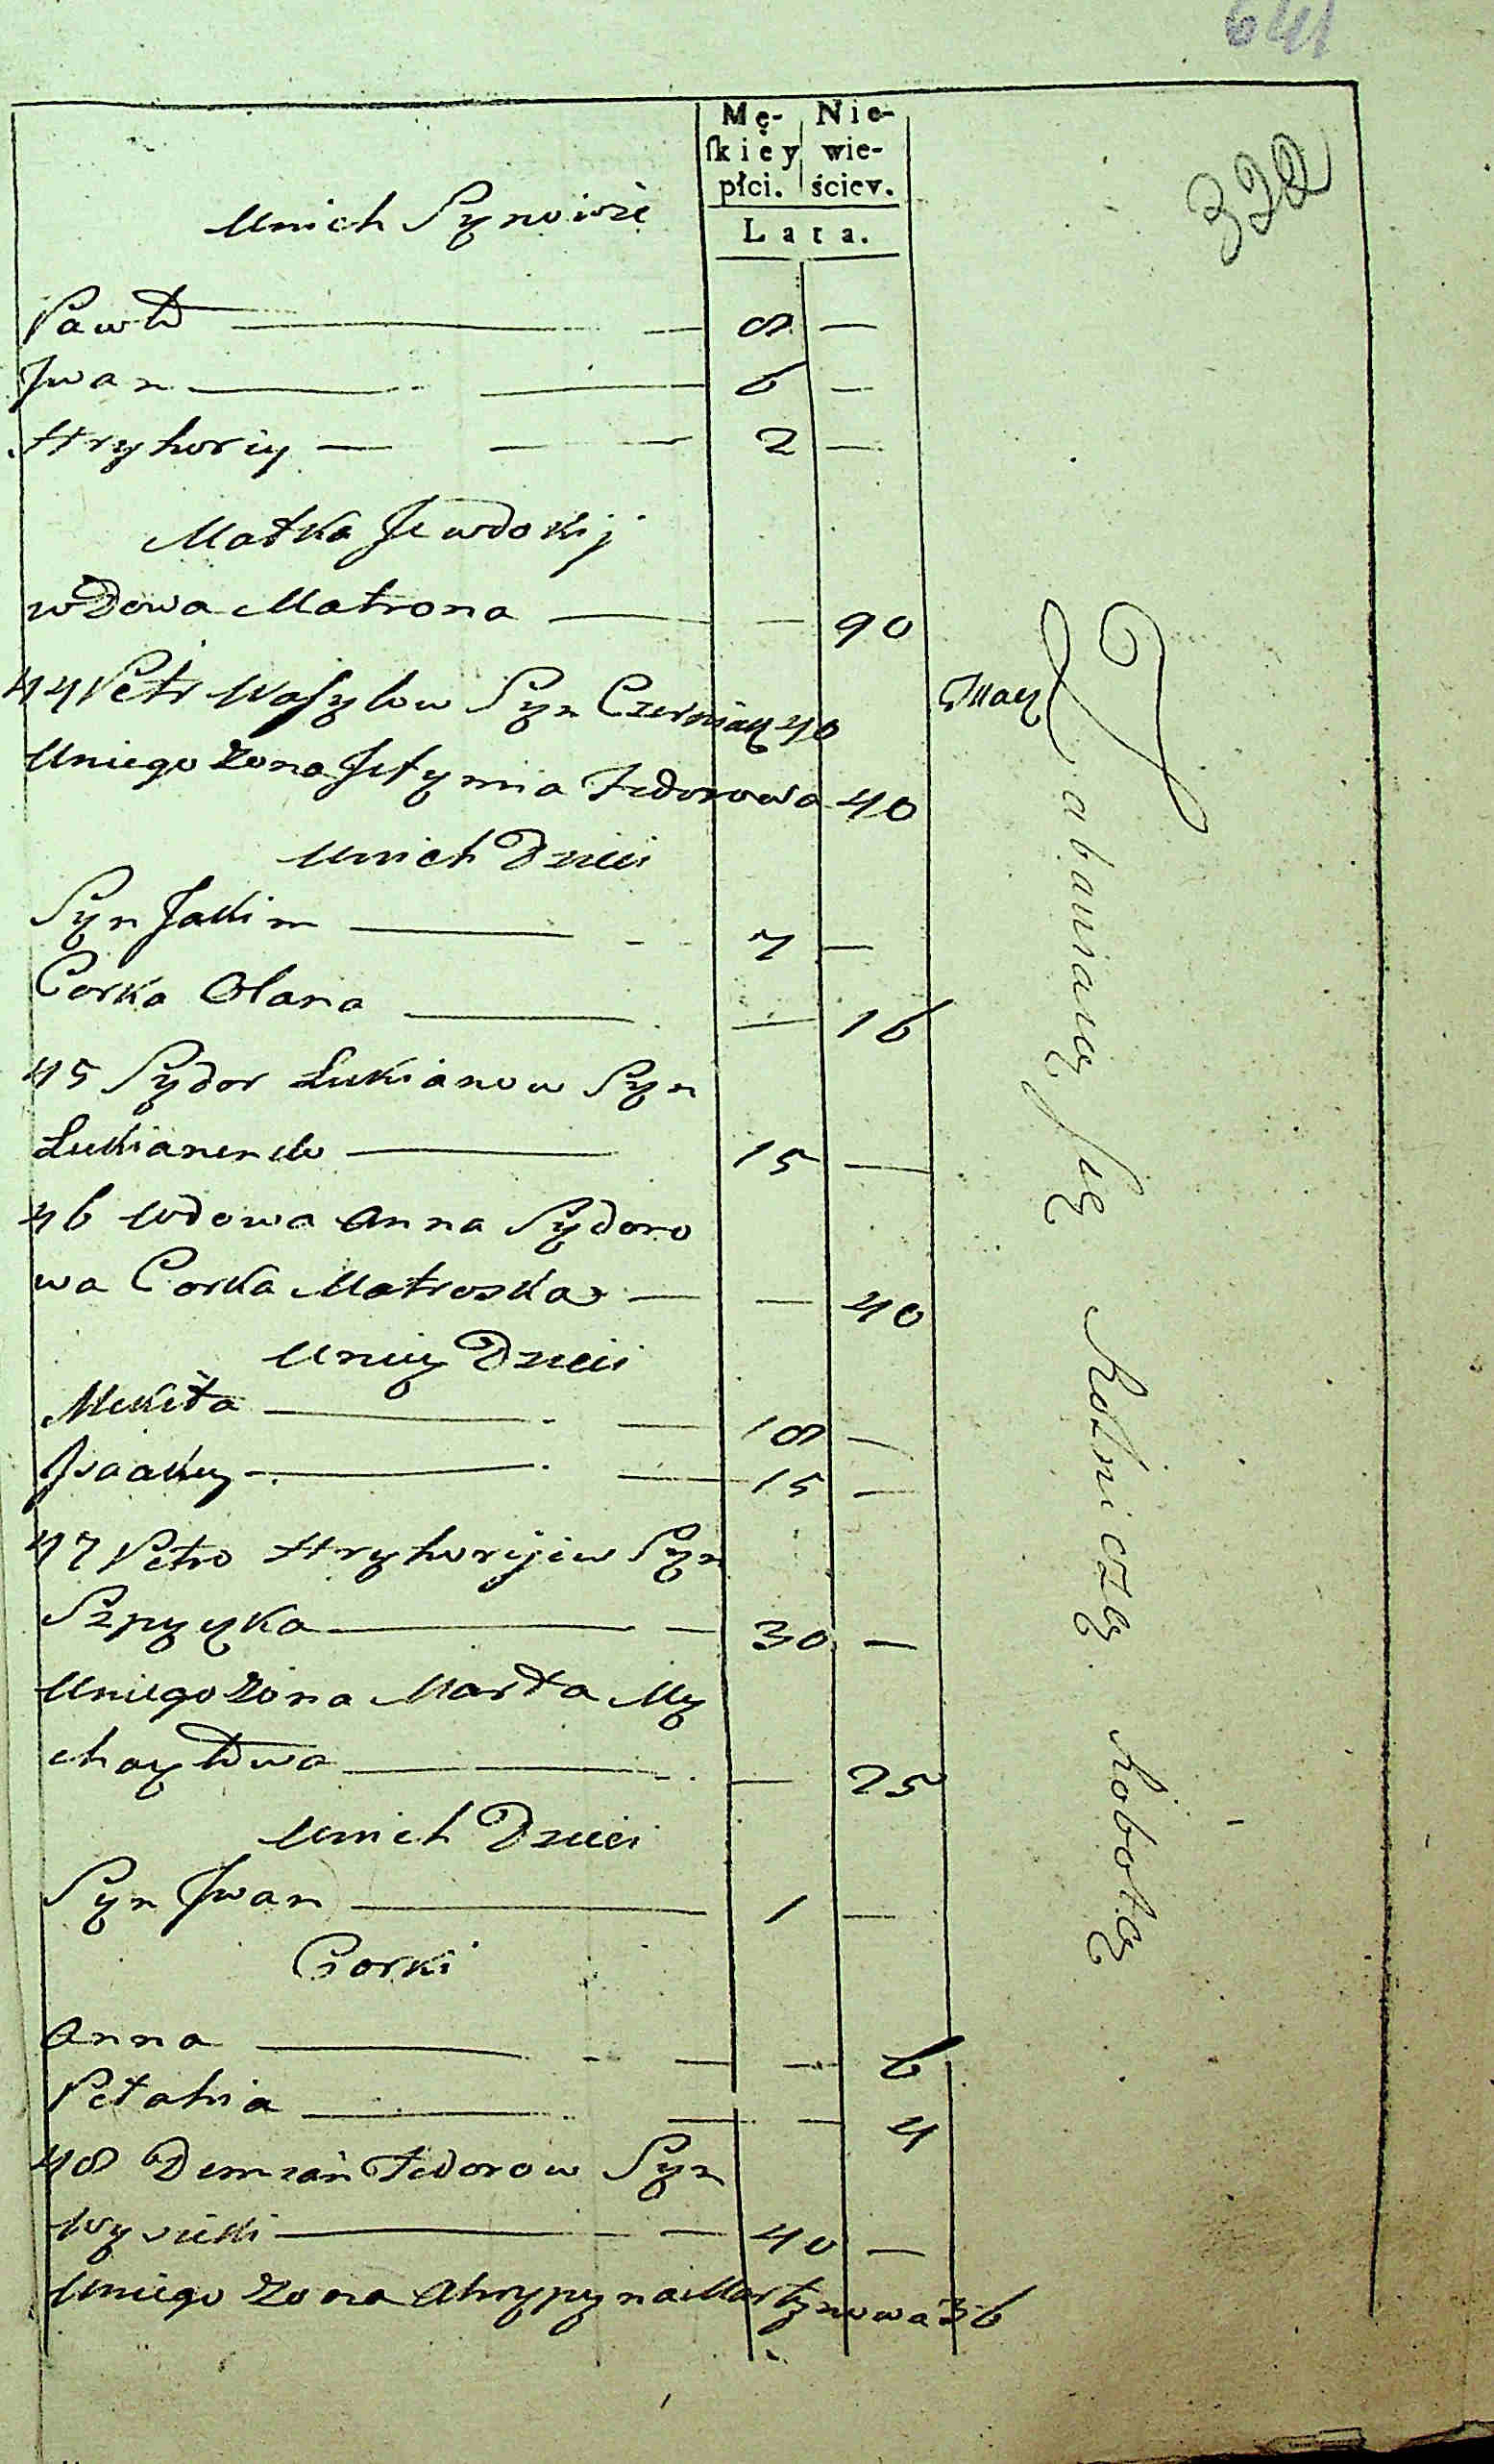 641
322
Mę- Nie-
ſkiey wie-
płci. ściey.
Lata.
Unich Synowie
Pawło — 8 —
Jwan — 6 —
Hryhoriy — 2 —
Matka Jewdokij
wdowa Matrona — — 90
44 Petr Wasylow Syn Czerniak 40
Uniego Zona Jefymia Fedorowa 40
Unich Dzieci
Syn Jakim — 7 —
Corka Olana — — 16
45 Sydor Lukianow Syn
Lukianenko — 15 —
46 Wdowa Anna Sydoro
wa Corka Matroska — — 40
Uniey Dzieci
Mikita — 18 —
Jsaakiy — 15 —
47 Petro Hryhorijew Syn
Szpyczka — 30 —
Uniego Zona Marta My
chayłowa — — 25
Unich Dzieci
Syn Jwan — 1 —
Corki
Anna — — 6
Pełahia — — 4
48 Demian Fedorow Syn
Wysicki — 40 —
Uniego Zona Ahrypyna Martynowa 36
Zabawiaią się Rolniczą Robotą